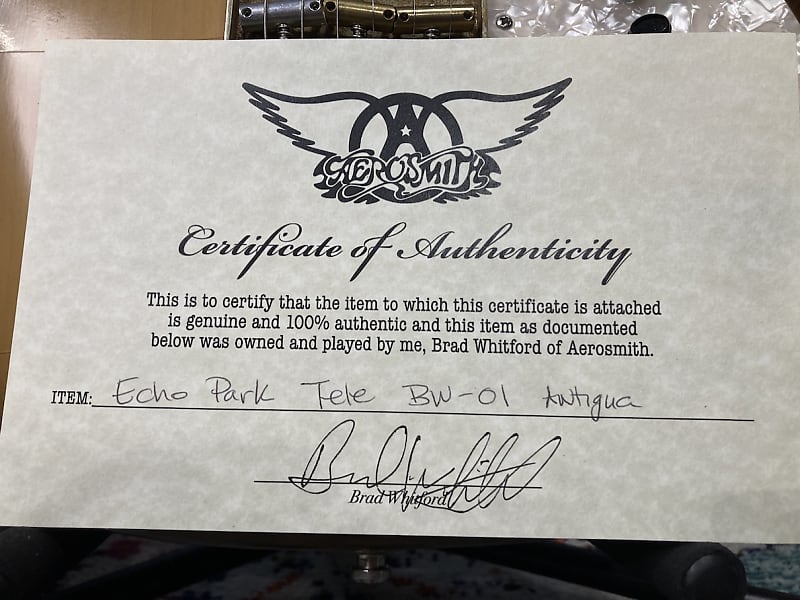 AEROSMITH
Certificate of Authenticity
This is to certify that the item to which this certificate is attached
is genuine and 100% authentic and this item as documented
below was owned and played by me, Brad Whitford of Aerosmith.
ITEM: Echo Park Tele BW-01 Antigua
Brad Whitford
Brad Whitford